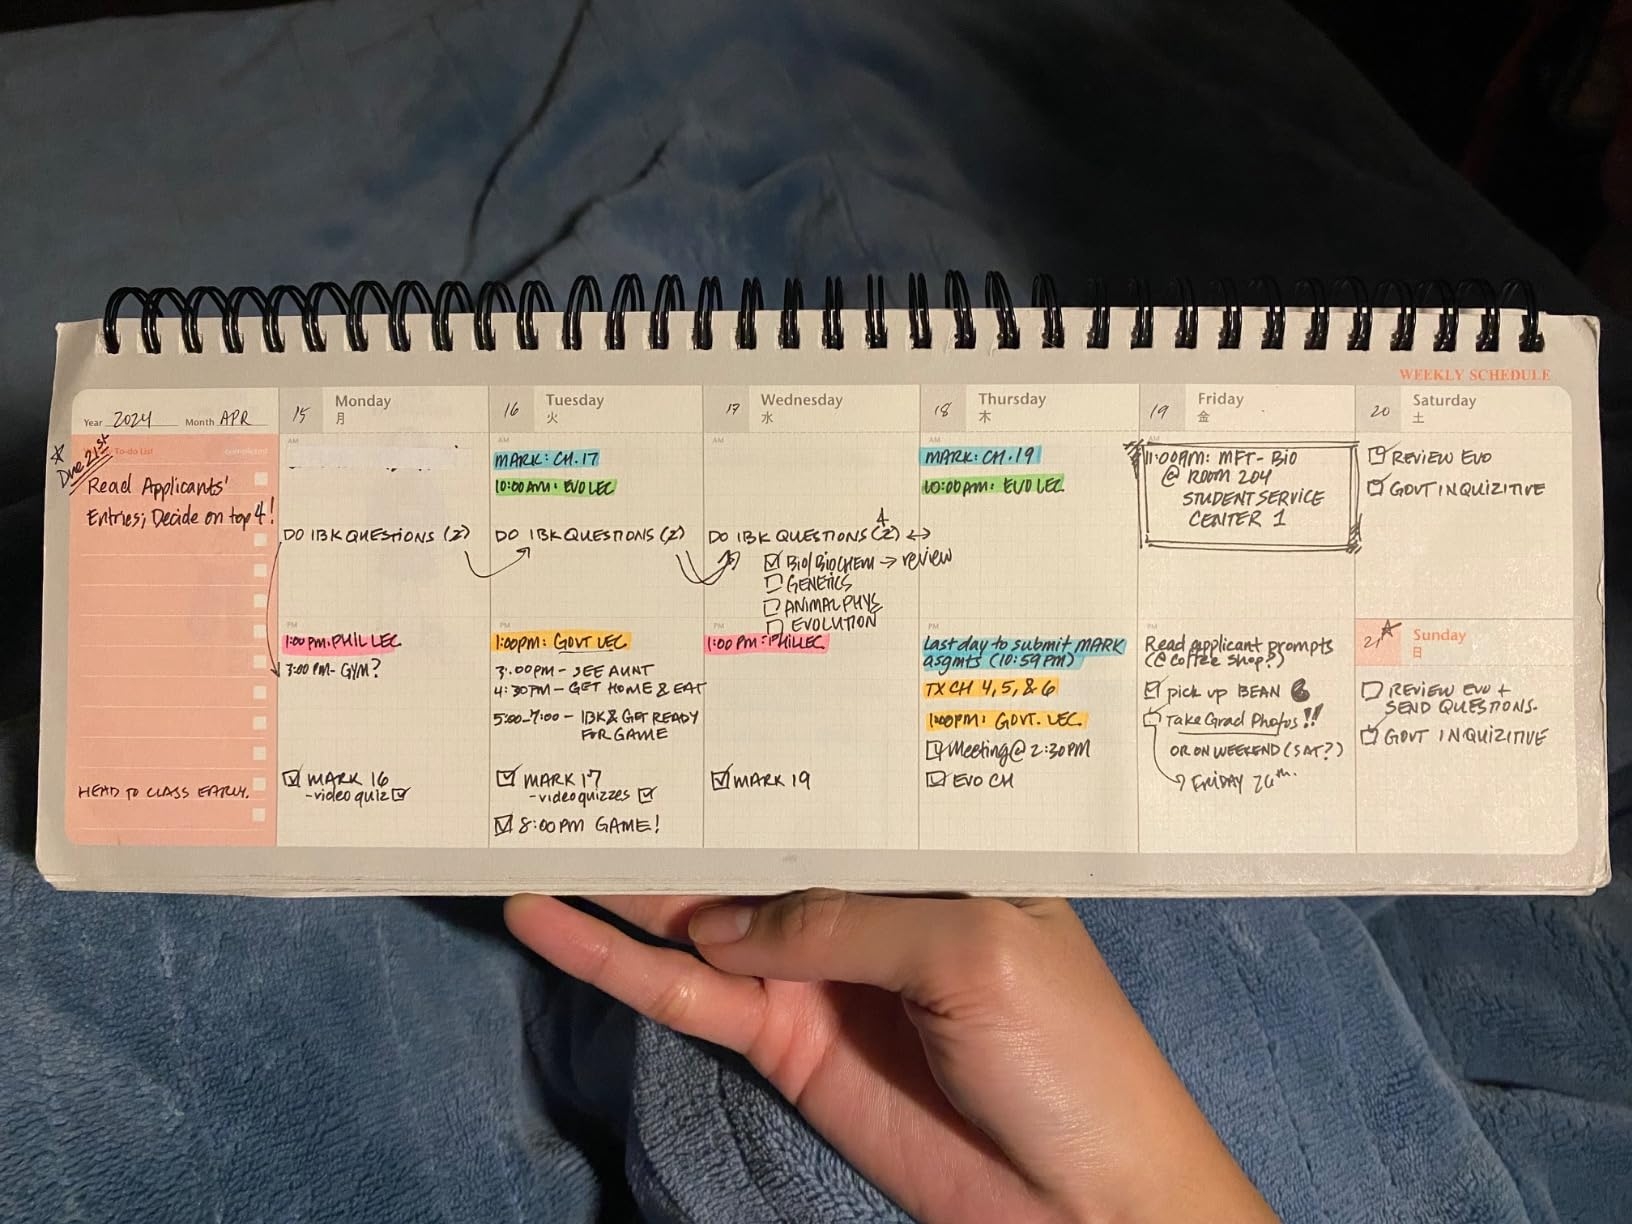 WEEKLY SCHEDULE
Year 2024 Month APR
To-do List completed
Due 21st
Read Applicants'
Entries; Decide on top 4!
HEAD TO CLASS EARLY.
15 Monday
月
AM
DO IBK QUESTIONS (2)
PM
1:00 PM: PHIL LEC
3:00 PM - GYM?
MARK 16
- video quiz
16 Tuesday
火
AM
MARK: CH. 17
10:00 AM: EVO LEC
DO IBK QUESTIONS (2)
PM
1:00PM: GOVT LEC
3:00PM - SEE AUNT
4:30PM - GET HOME & EAT
5:00-7:00 - IBK & GET READY
FOR GAME
MARK 17
- video quizzes
8:00PM GAME!
17 Wednesday
水
4
DO IBK QUESTIONS (2)
BIO/BIOCHEM → review
GENETICS
ANIMAL PHYS
EVOLUTION
1:00 PM: PHIL LEC
MARK 19
18 Thursday
木
AM
MARK: CH. 19
10:00AM: EVO LEC
PM
Last day to submit MARK
asgmts (10:59 PM)
TX CH 4, 5, & 6
1:00PM: GOVT. LEC
Meeting @ 2:30PM
EVO CH
19 Friday
金
AM
11:00AM: MFT - BIO
@ ROOM 204
STUDENT SERVICE
CENTER 1
PM
Read applicant prompts
(@ coffee shop?)
pick up BEAN
Take Grad Photos!!
OR ON WEEKEND (SAT?)
FRIDAY 26th.
20 Saturday
土
REVIEW EVO
GOVT INQUIZITIVE
21 Sunday
日
REVIEW EVO +
SEND QUESTIONS.
GOVT INQUIZITIVE